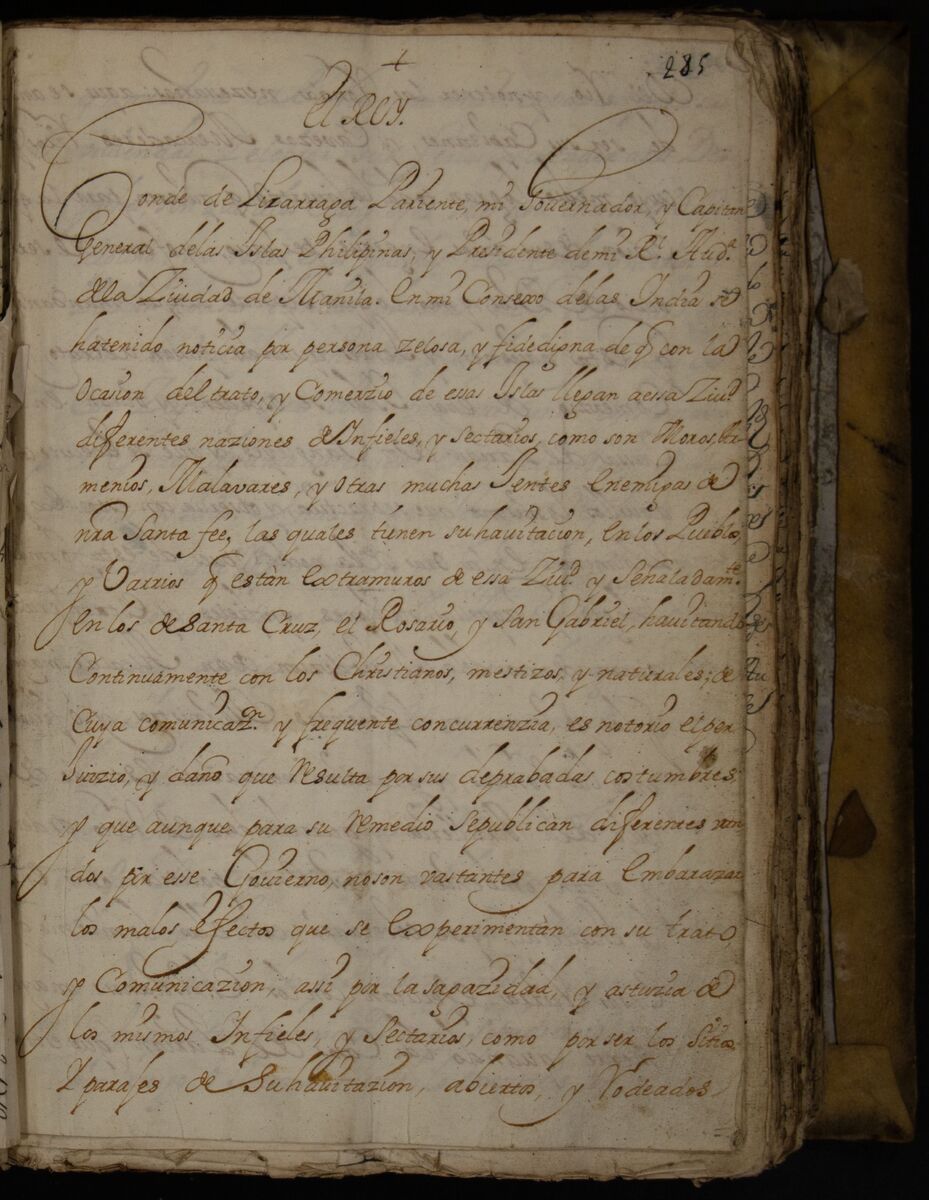 +
285
El Rey.
Conde de Lizarraga Pariente, mi Governador, y Capitan
General delas Islas Philipinas, y Presidente demi Rl. Auda.
dela Ziudad de Manila. En mi Consexo delas Indias se
hatenido noticia por persona zelosa, y fidedigna de q con la
Ocasion del trato, y Comerzio de essas Islas llegan aessa Ziud.
diferentes naziones de Infieles, y sectarios, como son Moros, Ar
menios, Malavares, y otras muchas Gentes Enemigas de
nra Santa fee, las quales tienen su havitacion, en los Pueblos,
y Varrios q estàn extramuros de essa Ziud. y señaladamte.
en los de Santa Cruz, el Rosario, y San Gabriel, havitando
Continuamente con los Christianos, mestizos, y naturales; de
Cuya comunicazn. y frequente concurrenzia, es notorio el per
Juizio, y daño que resulta por sus deprabadas costumbres
y que aunque para su remedio sepublican diferentes van
dos pr esse Govierno, no son vastantes para Embarazar
los malos efectos que se experimentan con su trato,
y Comunicazion, assi por la sagazidad, y astuzia de
los mismos Infieles, y Sectarios, como por ser los sitios
Y parajes de su havitazion, abiertos, y rodeados